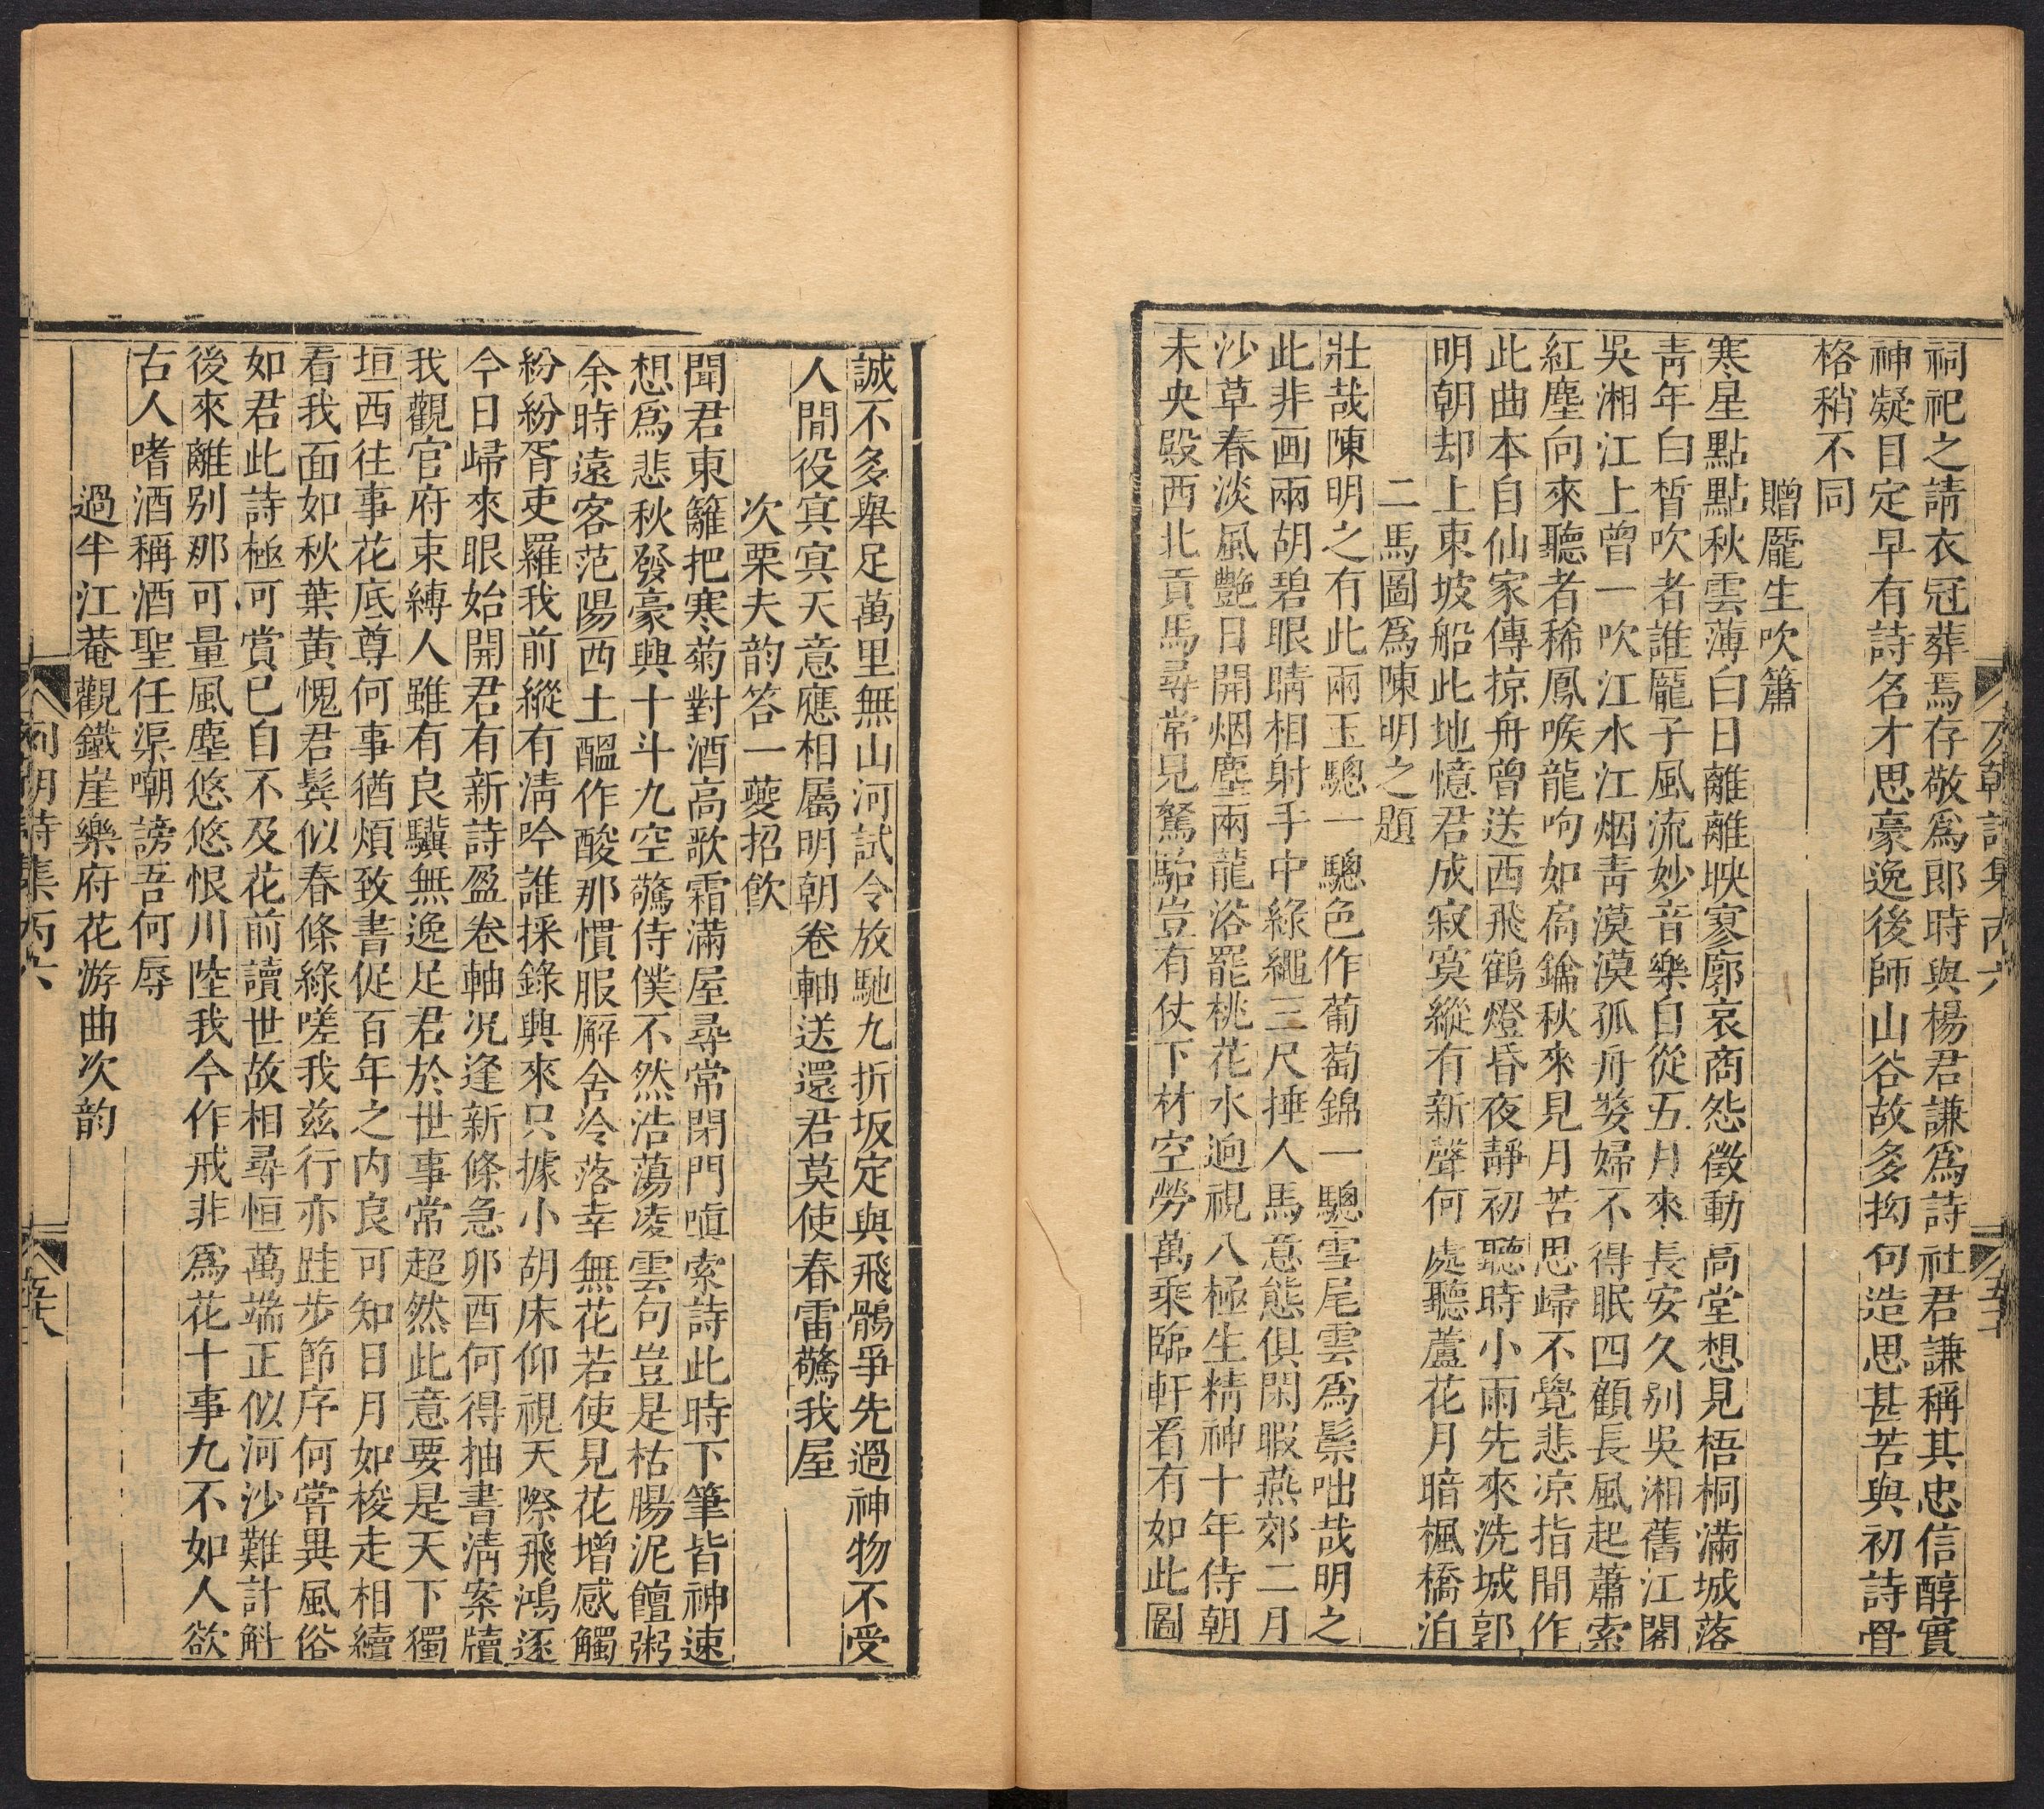 祠祀之請衣冠葬焉存敬爲郎時與楊君謙爲詩社君謙稱其忠信醇實
神凝目定早有詩名才思豪逸後師山谷故多拗句造思甚苦與初詩骨
格稍不同
贈龎生吹簫
寒星點點秋雲薄白日離離映寥廓哀商怨徵動高堂想見梧桐滿城落
靑年白晳吹者誰龎子風流妙音樂自從五月來長安久别吳湘舊江閣
吳湘江上曾一吹江水江烟靑漠漠孤舟嫠婦不得眠四顧長風起蕭索
紅塵向來聽者稀鳳喉龍呴如扄鑰秋來見月苦思歸不覺悲凉指間作
此曲本自仙家傳掠舟曾送西飛鶴燈昏夜靜初聽時小雨先來洗城郭
明朝却上東坡船此地憶君成寂寞縱有新聲何處聽蘆花月暗楓橋泊
二馬圖爲陳明之題
壯哉陳明之有此兩玉驄一驄色作葡萄錦一驄雪尾雲爲鬃咄哉明之
此非画兩胡碧眼睛相射手中綠繩三尺捶人馬意態俱閑暇燕郊二月
沙草春淡風艷日開烟塵兩龍浴罷桃花水逈視八極生精神十年侍朝
未央殿西北貢馬尋常見駑駘豈有仗下材空勞萬乘臨軒看有如此圖
誠不多舉足萬里無山河試令放馳九折坂定與飛鶻爭先過神物不受
人間役寘寘天意應相屬明朝卷軸送還君莫使春雷驚我屋
次栗夫韵答一夔招飲
聞君東籬把寒菊對酒高歌霜滿屋尋常閉門嗔索詩此時下筆皆神速
想爲悲秋發豪興十斗九空驚侍僕不然浩蕩凌雲句豈是枯腸泥饘粥
余時遠客范陽西土醞作酸那慣服廨舍冷落幸無花若使見花增感觸
紛紛胥吏羅我前縱有淸吟誰採錄興來只據小胡床仰視天際飛鴻逐
今日歸來眼始開君有新詩盈卷軸况逢新條急卯酉何得抽書淸案牘
我觀官府束縛人雖有良驥無逸足君於世事常超然此意要是天下獨
垣西往事花底尊何事猶煩致書促百年之内良可知日月如梭走相續
看我面如秋葉黄愧君鬓似春條綠嗟我兹行亦跬步節序何嘗異風俗
如君此詩極可賞已自不及花前讀世故相尋恒萬端正似河沙難計斛
後來離别那可量風塵悠悠恨川陸我今作戒非爲花十事九不如人欲
古人嗜酒稱酒聖任渠嘲謗吾何辱
過半江菴觀鐵崖樂府花游曲次韵